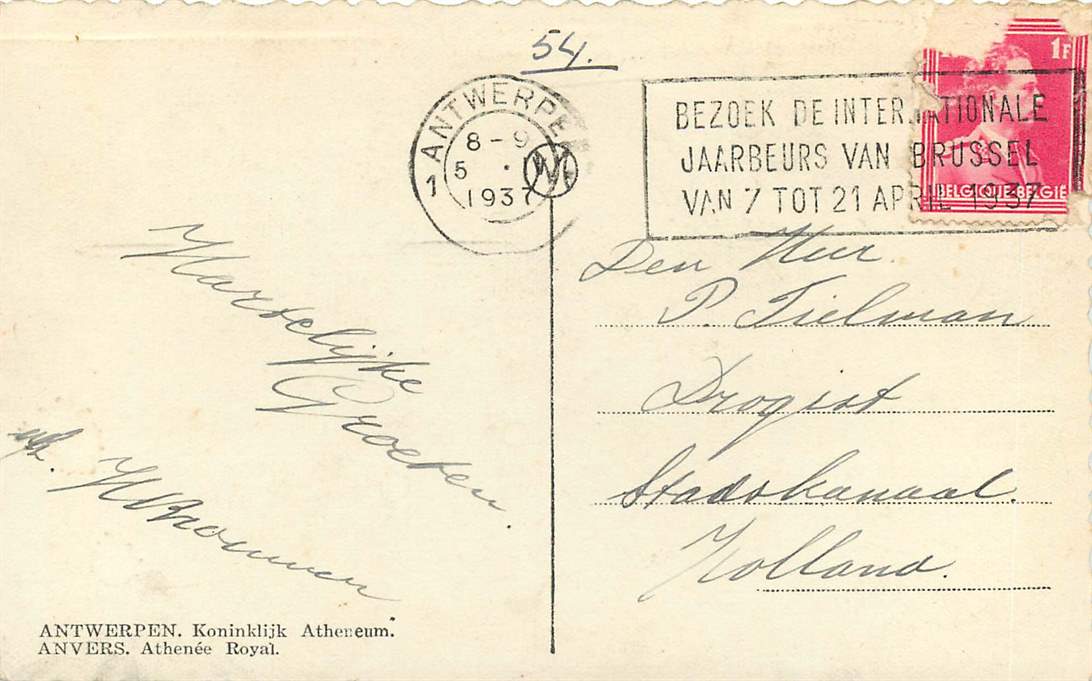 54.
1 ANTWERPEN
8-9
5 .
1937
BEZOEK DE INTERNATIONALE
JAARBEURS VAN BRUSSEL
VAN 7 TOT 21 APRIL 1937
1F
BELGIQUE-BELGIË
Hartelijke
Groeten.
Den Heer
P. Tielman
Drogist
Stadskanaal.
Holland.
ANTWERPEN. Koninklijk Atheneum.
ANVERS. Athenée Royal.